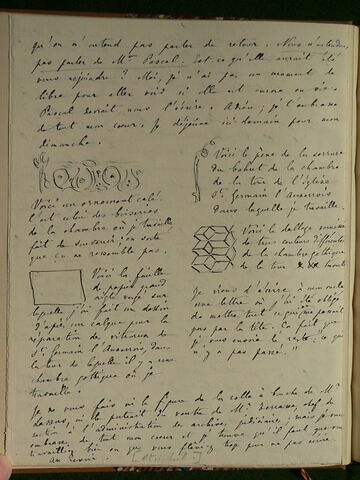 qu'on n'entend pas parler de retour. Nous n'entendons
pas parler de Mme Pascal. Est-ce qu'elle aurait été
vous rejoindre ? Moi, je n'ai pas un moment de
libre pour aller voir si elle est encore en vie.
Pascal devrait nous l'écrire. Adieu, je t'embrasse
de tout mon coeur. Je déjeune ici demain pour mon
dimanche.
Voici un ornement
C'est celui des boiseries
de la chambre où je travaille
fait de souvenir ; on dirait
que ça ne ressemble pas.
Voici le pène de la serrure
du bahut de la chambre
de la tour de l'église
St Germain l'Auxerrois
dans laquelle je travaille.
Voici la feuille
de papier grand
aigle sur
laquelle j'ai fait un dessin
d'après un calque pour la
réparation de
St Germain l'Auxerrois, dans
la tour de laquelle il y a une
chambre gothique où je
travaille.
Voici le dallage
de tous couleurs différentes
de la chambre gothique
de la tour
Je viens d'écrire à mon oncle
une lettre où j'ai été obligé
de mettre tout ce qui me passait
pas par la tête. Ça fait que
je vous envoie le reste : ce qui
n'y a pas passé."
Je ne vous fais ni la figure de la colle à bouche de Mr
Lassus, ni le portrait du ventre de Mr chef de
section à l'administration des archives judiciaires, mais je vous
embrasse de tout mon coeur et je trouve qu'il faut que vous
travailliez bien ou que vous flâniez trop pour ne pas écrire.
Au revoir.